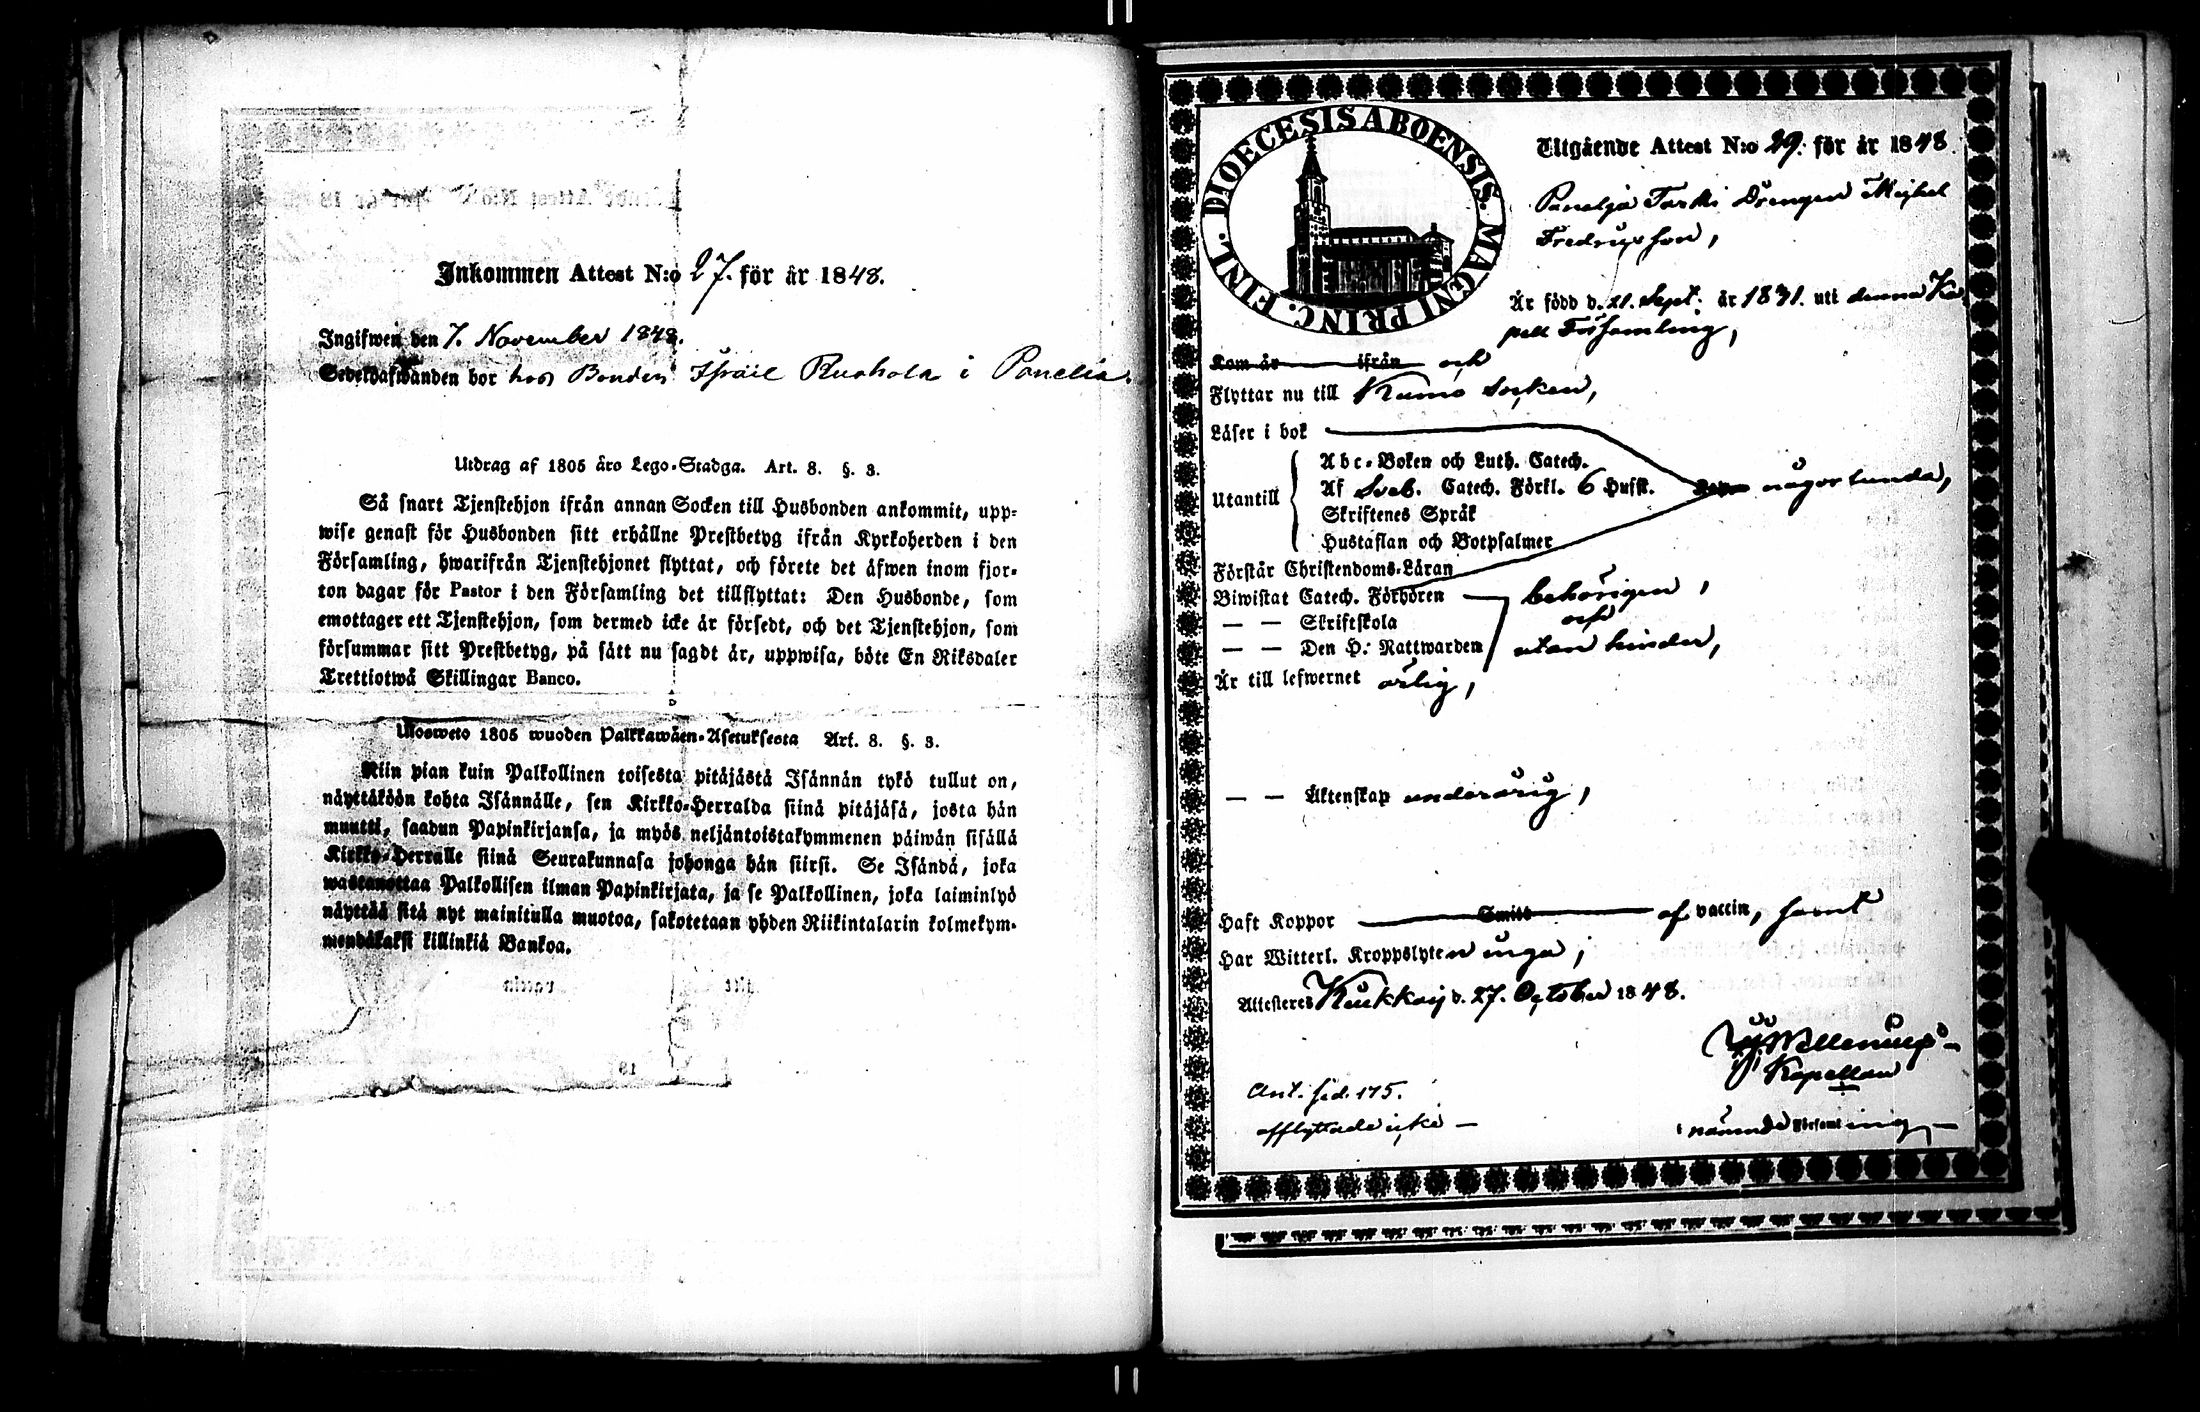 Inkommen Attest N:o 27. för år 1848.
Ingifwen den 7. November 1848.
Sedelhafwanden bor hos Bonden Israil Ruohola i Panelia.
Utdrag af 1805 års Lego-Stadga. Art. 8. §. 3.
Så snart Tjenstehjon ifrån annan Socken till Husbonden ankommit, upp-
wise genast för Husbonden sitt erhållne Prestbetyg ifrån Kyrkoherden i den
Församling, hwarifrån Tjenstehjonet flyttat, och förete det äfwen inom fjor-
ton dagar för Pastor i den Församling det tillflyttat: Den Husbonde, som
emottager ett Tjenstehjon, som dermed icke är försedt, och det Tjenstehjon, som
försummar sitt Prestbetyg, på sätt nu sagdt är, uppwisa, böte En Riksdaler
Trettiotwå Skillingar Banco.
Ulosweto 1805 wuoden Palkkawäen-Asetuksesta Art. 8. §. 3.
Niin pian kuin Palkollinen toisesta pitäjästä Isännän tykö tullut on,
näyttäköön kohta Isännälle, sen Kirkko-Herralda siinä pitäjäsä, josta hän
muutti, saadun Papinkirjansa, ja myös neljäntoistakymmenen päiwän sisällä
Kirkko-Herralle siinä Seurakunnasa johonga hän siirsi. Se Isändä, joka
wastanottaa Palkollisen ilman Papinkirjata, ja se Palkollinen, joka laiminlyö
näyttää sitä nyt mainitulla muotoa, sakotetaan yhden Riikintalarin kolmekym-
mendäkaksi killinkiä Bankoa.
DIOECESIS ABOENSIS. MAGNI PRINC. FINL.
Utgående Attest N:o 29. för år 1848.
Panelja Tarki Drengen Michel
Fredricsson,
Är född d. 21. Sept. år 1831. uti denna Ka
pell Församling,
Kom år ifrån och
Flyttar nu till Kumo Socken,
Läser i bok
Utantill
Abc-Boken och Luth. Catech.
Af Sveb. Catech. Förkl. 6 Husst. någorlunda,
Skriftenes Språk
Hustaflan och Botpsalmer
Förstår Christendoms-Läran
Biwistat Catech. Förhören behörigen,
— — Skriftskola och
— — Den H. Nattwarden utan hinder,
Är till lefwernet ärlig,
— — Äktenskap underårig,
Haft Koppor Smitt af vaccin, samt
Har Witterl. Kroppslyten inga;
Attesteras Kiukkais d. 27. October 1848.
Kapellan
i nämnde Församling —
Ant. sid. 175.
afflyttade icke —